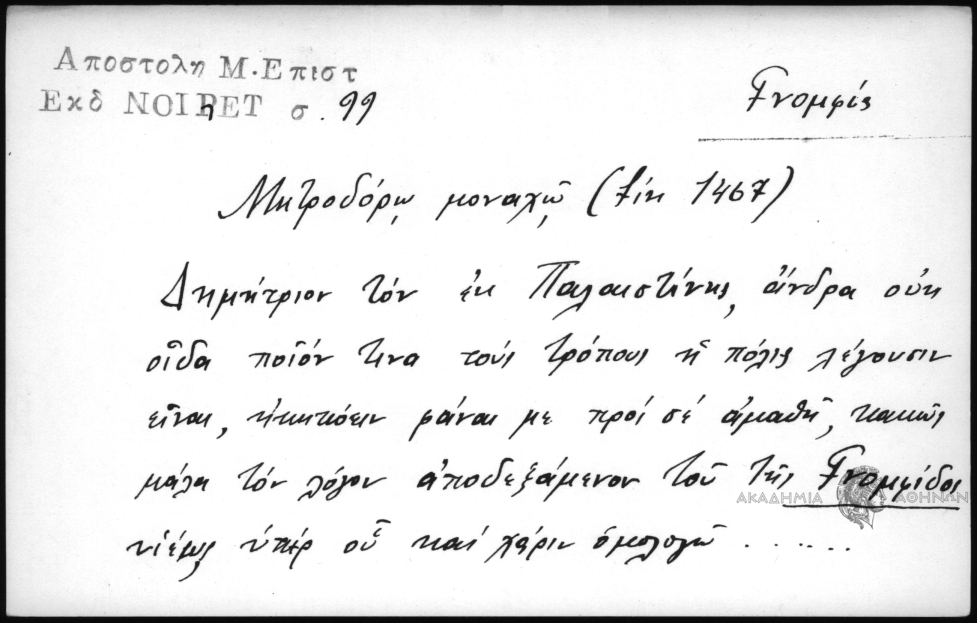 Αποστολη Μ. Επιστ
Εκδ NOIRET σ. 99
Γνομφίς
Μητροδόρῳ μοναχῷ (έίη 1467)
Δημήτριον τόν ἐκ Παλαιστίνης, ἄνδρα οὐκ
οἶδα ποῖόν τινα τούς τρόπους ἤ πόλις λέγουσιν
εἶναι, ἠκηκόειν φάναι με πρός σέ ἀμαθῆ, κακῶς
μάλα τόν λόγον ἀποδεξάμενον τοῦ τῆς Γνομφίδος
υἱέως ὑπέρ οὗ καί χάριν ὁμολογῶ ......
ΑΚΑΔΗΜΙΑ ΑΘΗΝΩΝ